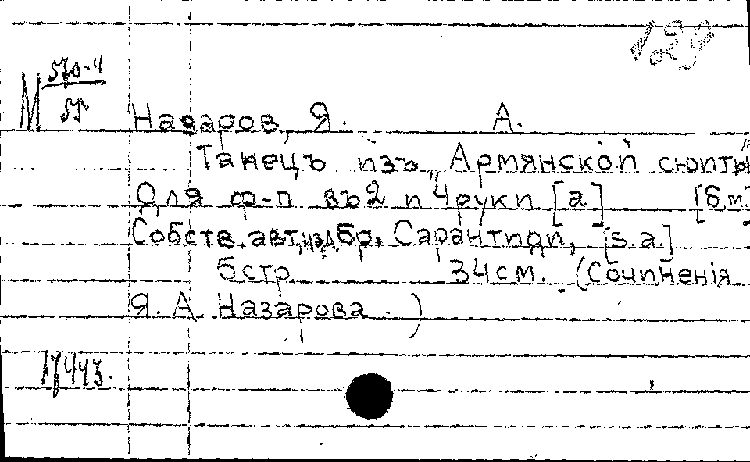 129
М 570-4
55
Назаров, Я. А.
Танецъ изъ „Армянской сюиты"
Для ф-п въ 2 и 4 руки [а] [б.м.
Собств. авт, изд бр. Сарантиди, [s.a.]
6стр 34см. (Сочиненія
Я. А Назарова.)
17443.